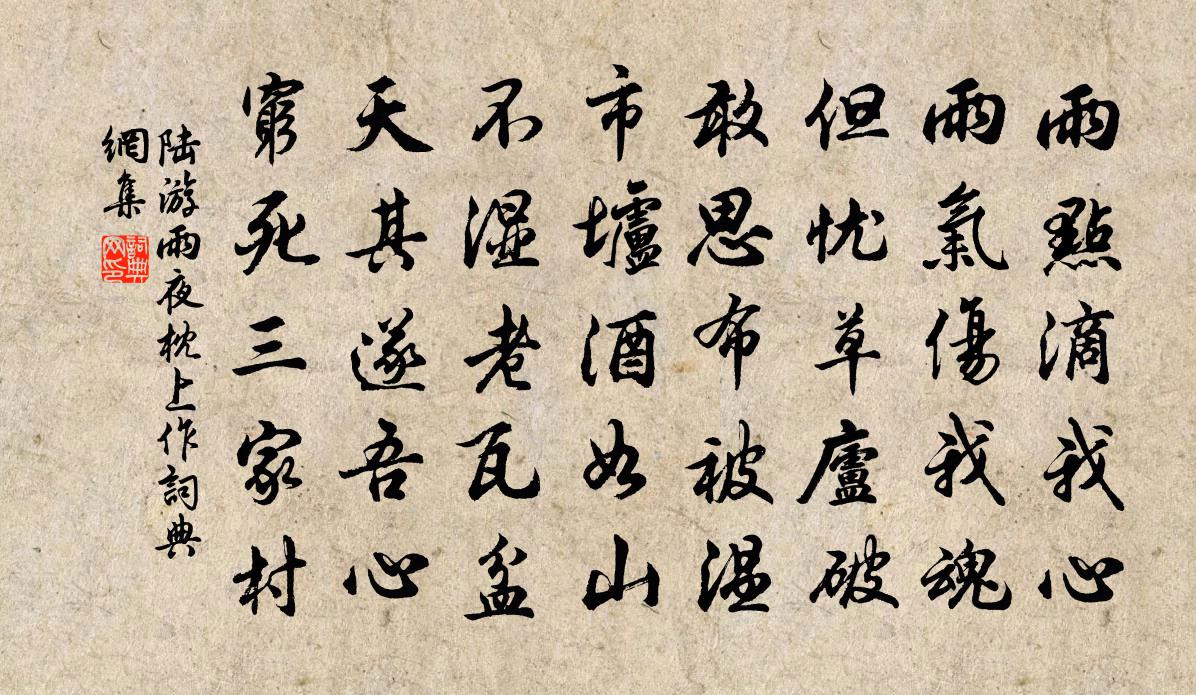 雨點滴我心
雨氣傷我魂
但忧草廬破
敢思布被溫
市壚酒如山
不濕老瓦盆
天其遂吾心
窮死三家村
陆游雨夜枕上作詞典
網集
詞典
网印